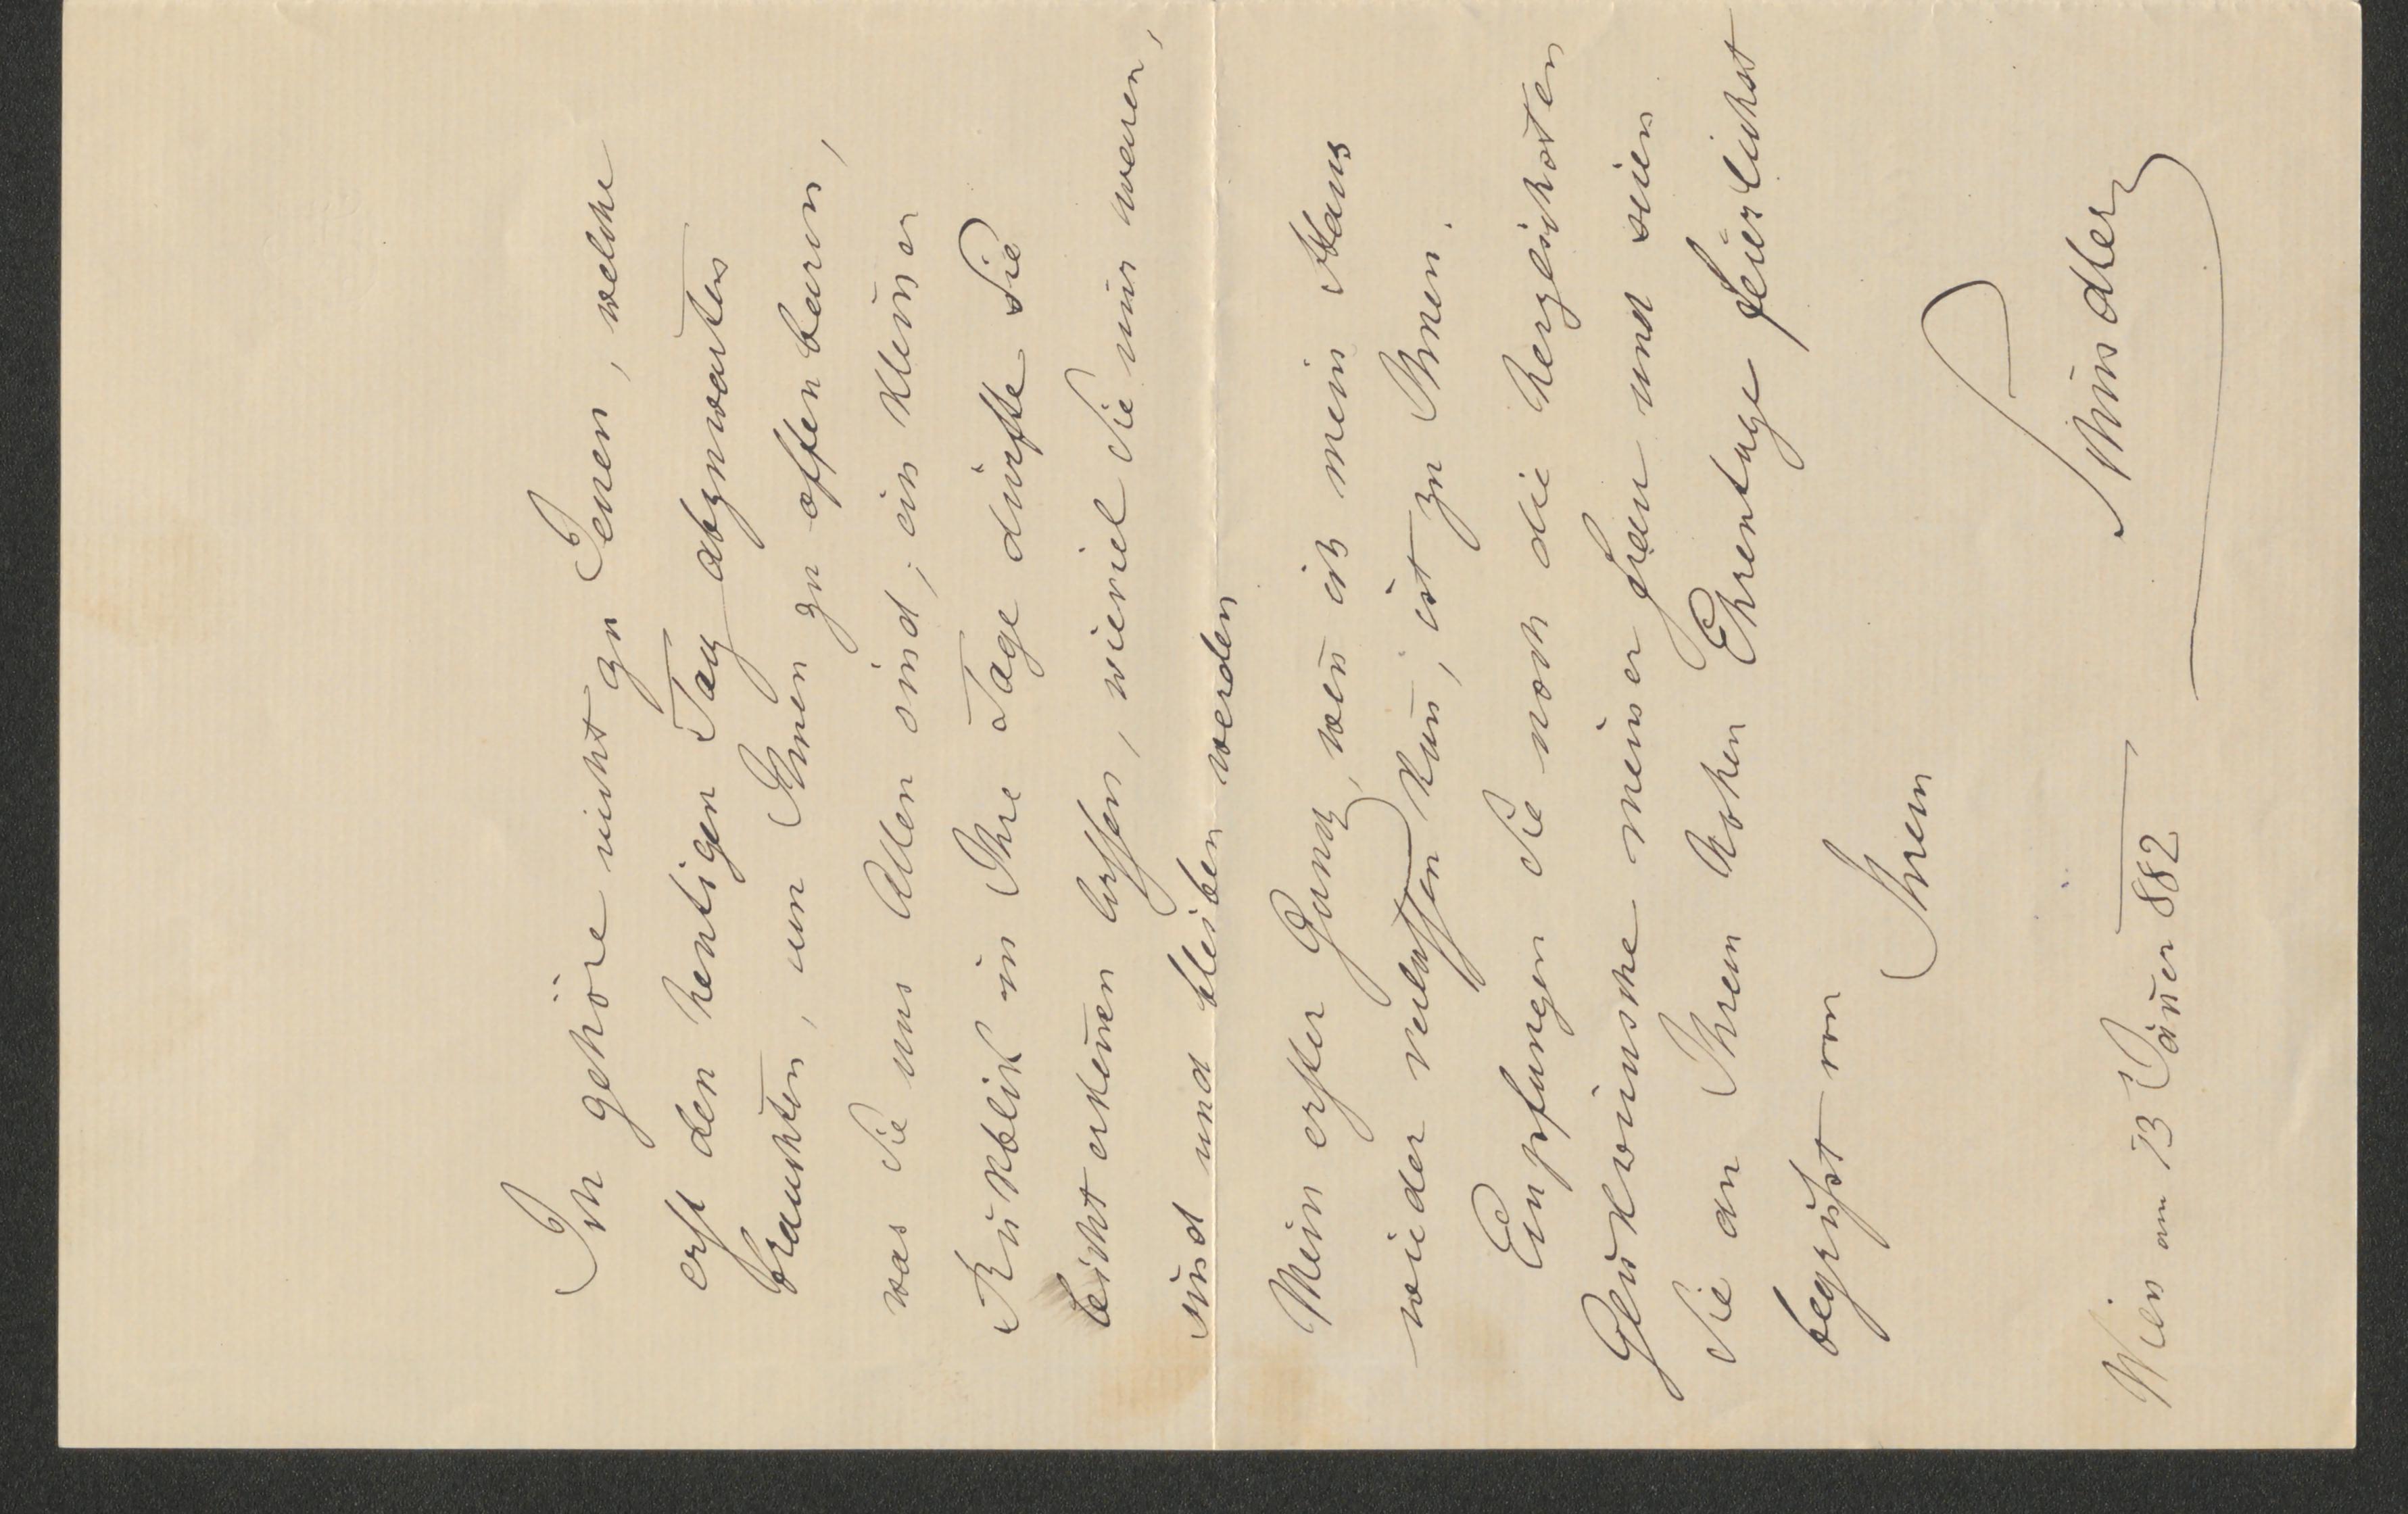 Ich gehöre nicht zu Jenen, welche
erst den heutigen Tag abzuwarten
brauchten, um Ihnen zu offenbaren,
was Sie uns Allen sind; ein kleiner
Rükblik in Ihre Tage dürfte Sie
leicht erkenen lassen, wieviel Sie mir waren,
sind und bleiben werden
Mein erster Gang, wen ich mein Haus
wieder verlassen kan, ist zu Ihnen.
Empfangen Sie noch die herzlichsten
Glükwünsche meiner Frau und seien
Sie an Ihrem hohen Ehrentage feierlichst
begrüßt von
Ihrem
Schindler
Wien am 13 Jäner 882